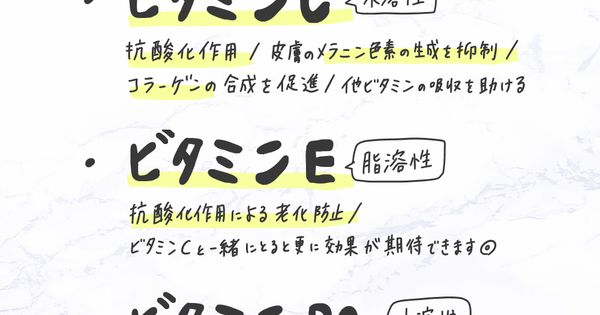 ・ビタミンC 水溶性
抗酸化作用 / 皮膚のメラニン色素の生成を抑制 /
コラーゲンの合成を促進 / 他ビタミンの吸収を助ける
・ビタミンE 脂溶性
抗酸化作用による老化防止 /
ビタミンCと一緒にとると更に効果が期待できます◎
ビタミン